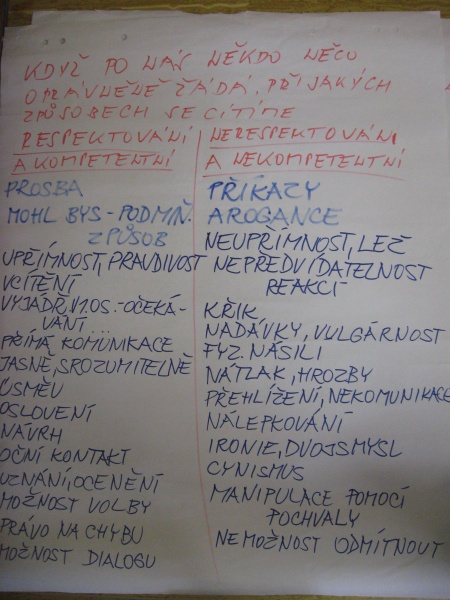 KDYŽ PO NÁS NĚKDO NĚCO
OPRÁVNĚNĚ ŽÁDÁ, PŘI JAKÝCH
ZPŮSOBECH SE CÍTÍME
RESPEKTOVÁNÍ
A KOMPETENTNÍ
PROSBA
MOHL BYS - PODMIŇ.
ZPŮSOB
UPŘÍMNOST, PRAVDIVOST
VCÍTĚNÍ
VYJÁDŘ. V 1. OS. - OČEKÁ-
VÁNÍ...
PŘÍMÁ KOMUNIKACE
JASNĚ, SROZUMITELNĚ
ÚSMĚV
OSLOVENÍ
NÁVRH
OČNÍ KONTAKT
UZNÁNÍ, OCENĚNÍ
MOŽNOST VOLBY
PRÁVO NA CHYBU
MOŽNOST DIALOGU
NERESPEKTOVÁNI
A NEKOMPETENTNÍ
PŘÍKAZY
AROGANCE
NEUPŘÍMNOST, LEŽ
NEPŘEDVÍDATELNOST
REAKCÍ
KŘIK
NADÁVKY, VULGÁRNOST
FYZ. NÁSILÍ
NÁTLAK, HROZBY
PŘEHLÍŽENÍ, NEKOMUNIKACE
NÁLEPKOVÁNÍ
IRONIE, DVOJSMYSL
CYNISMUS
MANIPULACE POMOCÍ
POCHVALY
NEMOŽNOST ODMÍTNOUT